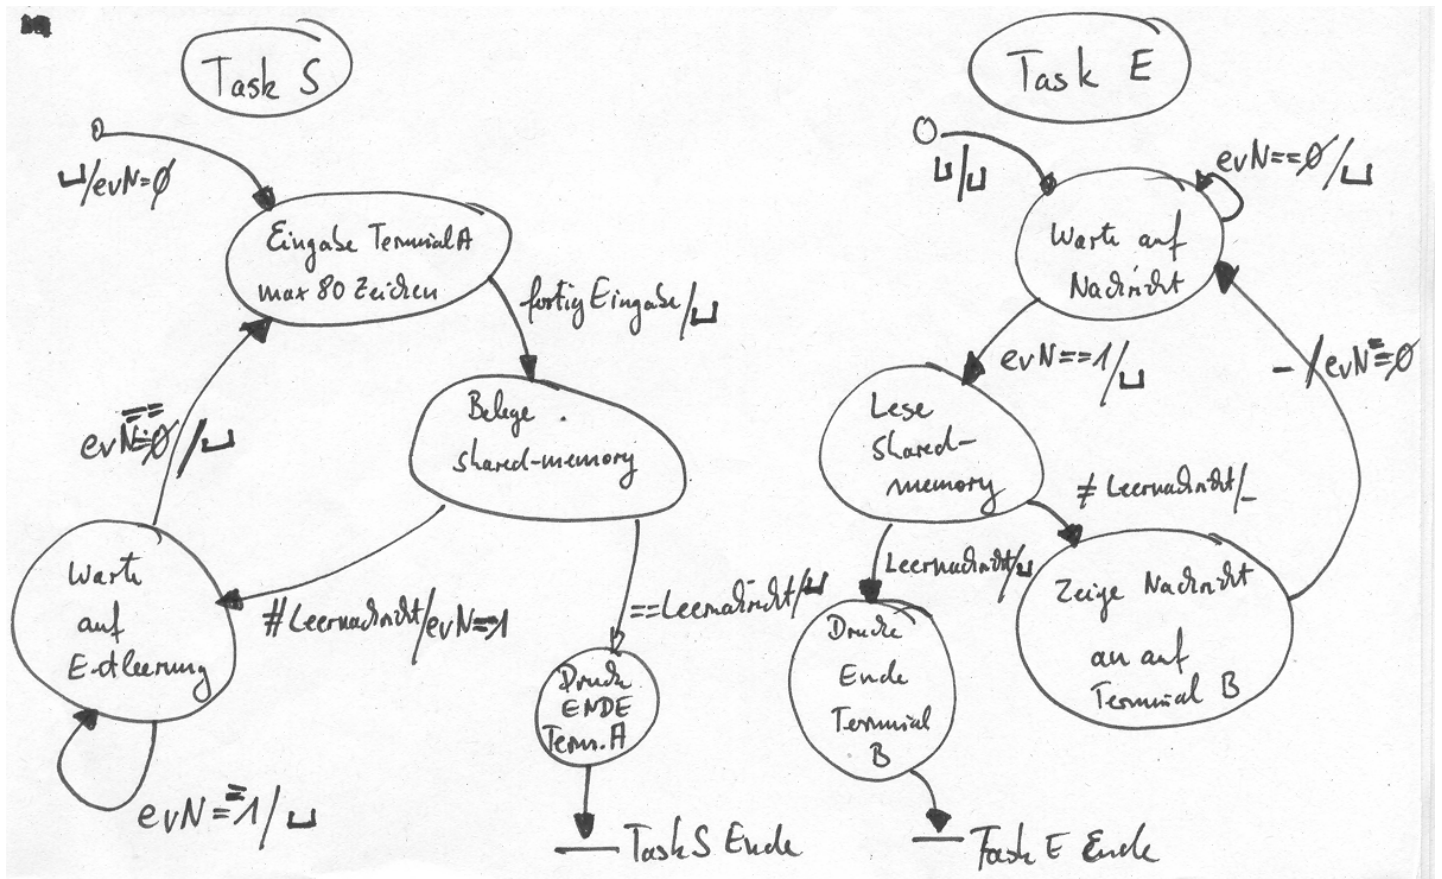 Task S
␣/evN=0
Eingabe Terminal A
max 80 Zeichen
fertig Eingabe/␣
Belege
shared-memory
evN==0/␣
Warte
auf
Entleerung
≠Leernachricht/evN=1
==Leernachricht/␣
Drucke
ENDE
Term. A
evN==1/␣
Task S Ende
Task E
␣/␣
evN==0/␣
Warte auf
Nachricht
evN==1/␣
-/evN=0
Lese
shared-
memory
≠ Leernachricht/-
Leernachricht/␣
Zeige Nachricht
an auf
Terminal B
Drucke
Ende
Terminal
B
Task E Ende